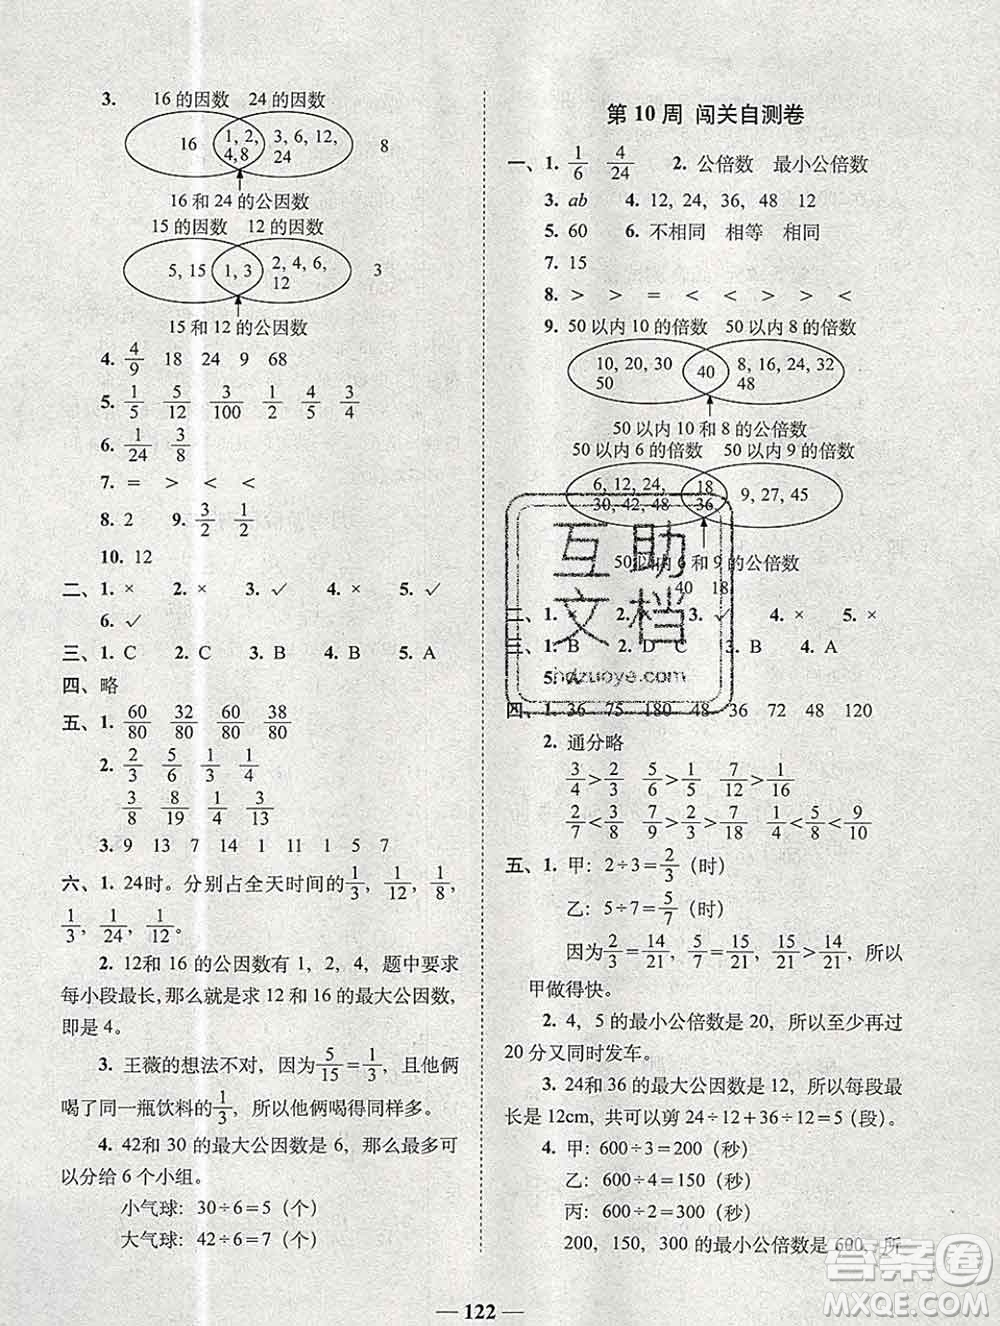 3. 16的因数 24的因数
16 1, 2, 4, 8 3, 6, 12, 24 8
16和24的公因数
15的因数 12的因数
5, 15 1, 3 2, 4, 6, 12 3
15和12的公因数
4. 4/9 18 24 9 68
5. 1/5 5/12 3/100 1/2 4/5 3/4
6. 1/24 3/8
7. = > < <
8. 2 9. 3/2 1/2
10. 12
二、1. × 2. × 3. ✓ 4. × 5. ✓
6. ✓
三、1. C 2. C 3. B 4. B 5. A
四、略
五、1. 60/80 32/80 60/80 38/80
2. 2/3 5/6 1/2 1/4
3/8 8/19 1/4 3/13
3. 9 13 7 14 1 11 1 5 7
六、1. 24时。分别占全天时间的1/3，1/12，1/8，
1/3，1/24，1/12。
2. 12和16的公因数有1，2，4，题中要求
每小段最长，那么就是求12和16的最大公因数，
即是4。
3. 王薇的想法不对，因为5/15=1/3，且他俩
喝了同一瓶饮料的1/3，所以他俩喝得同样多。
4. 42和30的最大公因数是6，那么最多可
以分给6个小组。
小气球：30÷6=5（个）
大气球：42÷6=7（个）
第10周 闯关自测卷
一、1. 1/6 4/24 2. 公倍数 最小公倍数
3. ab 4. 12, 24, 36, 48 12
5. 60 6. 不相同 相等 相同
7. 15
8. > > = < < > > <
9. 50以内10的倍数 50以内8的倍数
10, 20, 30 50 40 8, 16, 24, 32 48
50以内10和8的公倍数
50以内6的倍数 50以内9的倍数
6, 12, 24, 30, 42, 48 18 36 9, 27, 45
50以内6和9的公倍数
40 18
二、1. × 2. 3. ✓ 4. × 5. ×
三、1. B 2. D C 3. B 4. A
5.
四、1. 36 75 180 48 36 72 48 120
2. 通分略
3/4>2/3 5/6>1/5 7/12>1/16
2/7<3/8 7/9>2/3>7/18 1/4<5/8<9/10
五、1. 甲：2÷3=2/3（时）
乙：5÷7=5/7（时）
因为2/3=14/21，5/7=15/21，15/21>14/21，所以
甲做得快。
2. 4，5的最小公倍数是20，所以至少再过
20分又同时发车。
3. 24和36的最大公因数是12，所以每段最
长是12cm，共可以剪24÷12+36÷12=5（段）。
4. 甲：600÷3=200（秒）
乙：600÷4=150（秒）
丙：600÷2=300（秒）
200，150，300的最小公倍数是600，所
互助
文档
hdzuoye.com
答案圈
MXQE.COM
— 122 —